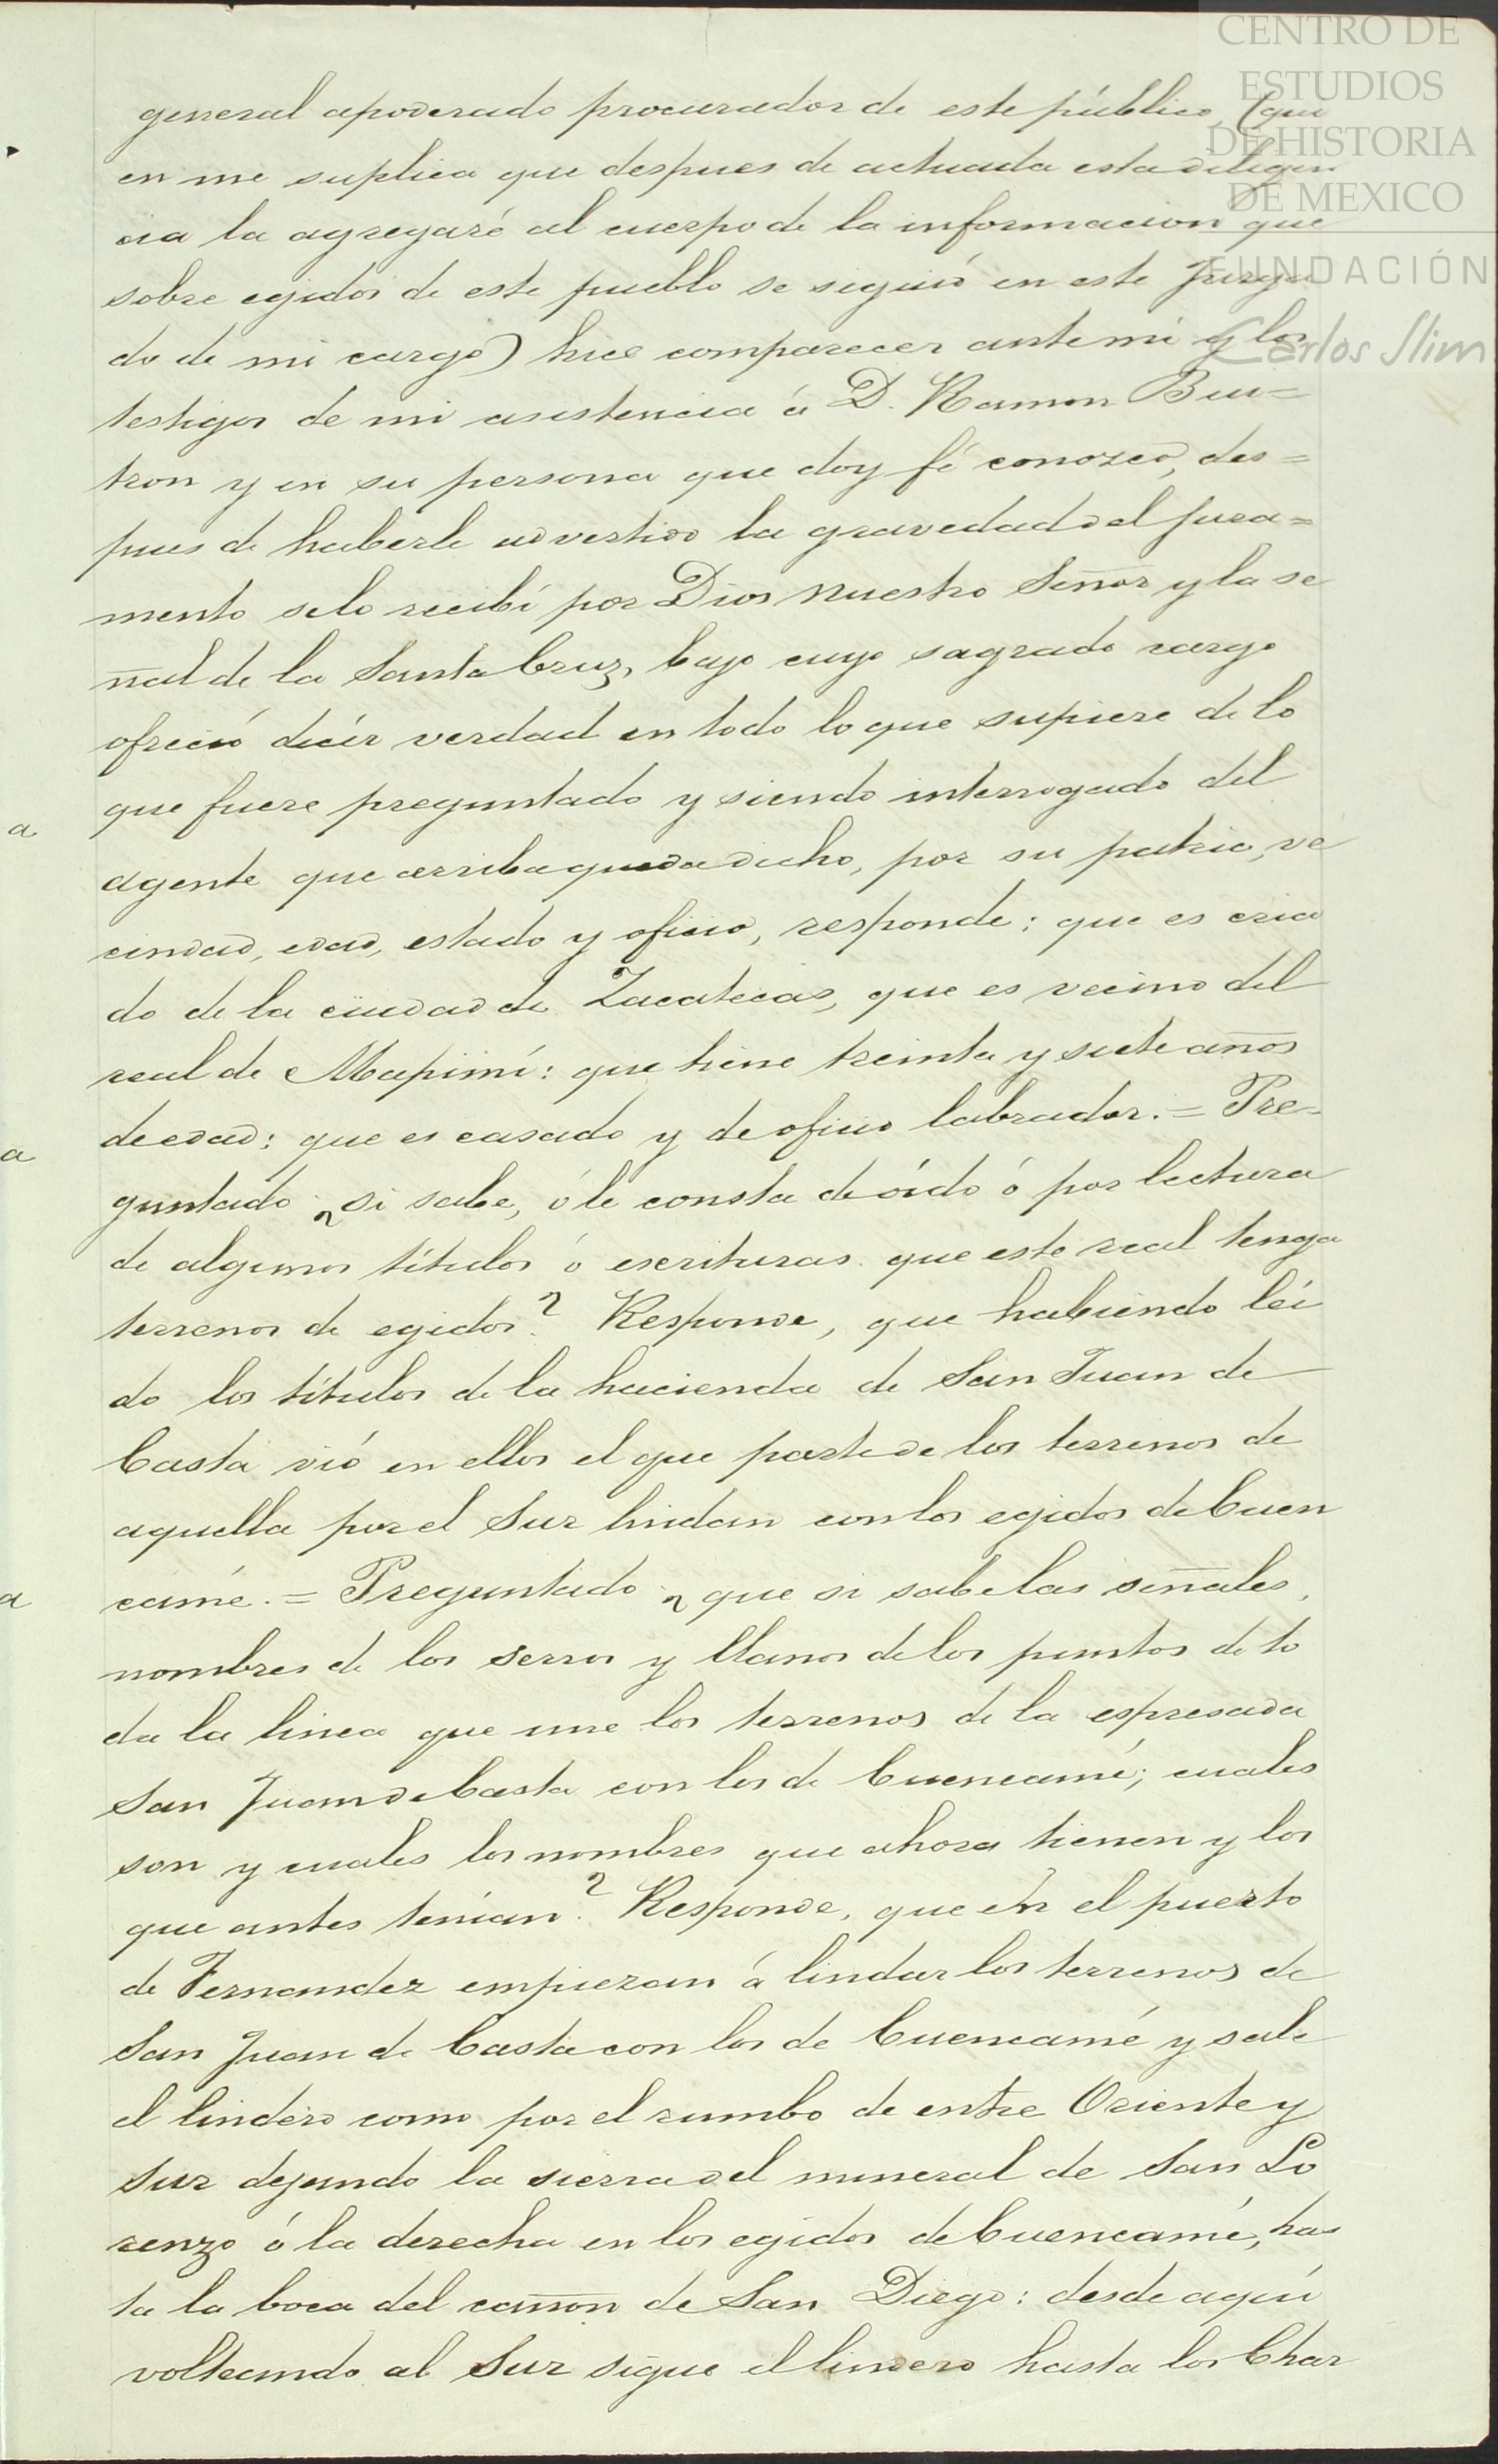 CENTRO DE
ESTUDIOS
DE HISTORIA
DE MEXICO
FUNDACIÓN
Carlos Slim
general apoderado procurador de este público, (qui
en me suplica que despues de actuada esta diligen
cia la agregaré al cuerpo de la informacion que
sobre egidos de este pueblo se siguió en este Juzga
do de mi cargo) hice comparecer ante mi y los
testigos de mi asistencia á D. Ramon Bui=
tron y en su persona que doy fé conozco, des=
pues de haberle advertido la gravedad del jura=
mento selo recibí por Dios Nuestro Señor y la se
ñal de la Santa Cruz, bajo cuyo sagrado cargo
ofreció decír verdad en todo lo que supiere de lo
que fuere preguntado y siendo interrogado del
a
agente que arriba queda dicho, por su patria, ve
cindad, edad, estado y oficio, responde: que es cria
do de la ciudad de Zacatecas, que es vecino del
real de Mapimí: que tiene treinta y siete años
de edad: que es casado y de oficio labrador. = Pre-
a
guntado ¿si sabe, ó le consta de oído ó por lectura
de algunos títulos ó escrituras que este real tenga
terrenos de egidos? Responde, que habiendo léi
do los títulos de la hacienda de San Juan de
Casta vió en ellos el que parte de los terrenos de
aquella por el Sur lindan con los egidos de Cuen
a
camé. = Preguntado ¿que si sabe las señales,
nombres de los serros y llanos de los puntos de to
da la linea que une los terrenos de la espresada
San Juan de Casta con los de Cuencamé; cuales
son y cuales los nombres que ahora tienen y los
que antes tenían? Responde, que en el puerto
de Fernandez empiezan á lindar los terrenos de
San Juan de Casta con los de Cuencamé y sale
el lindero como por el rumbo de entre Oriente y
Sur dejando la sierra del mineral de San Lo
renzo ó la derecha en los egidos de Cuencamé, has
ta la boca del cañon de San Diego: desde aquí
volteando al Sur sigue el lindero hasta los Char